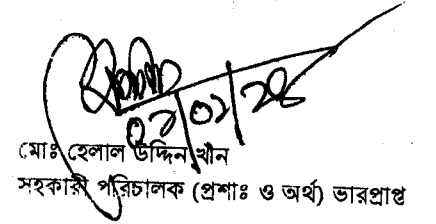 ০২/০১/২৪
মোঃ হেলাল উদ্দিন খাঁন
সহকারী পরিচালক (প্রশাঃ ও অর্থ) ভারপ্রাপ্ত